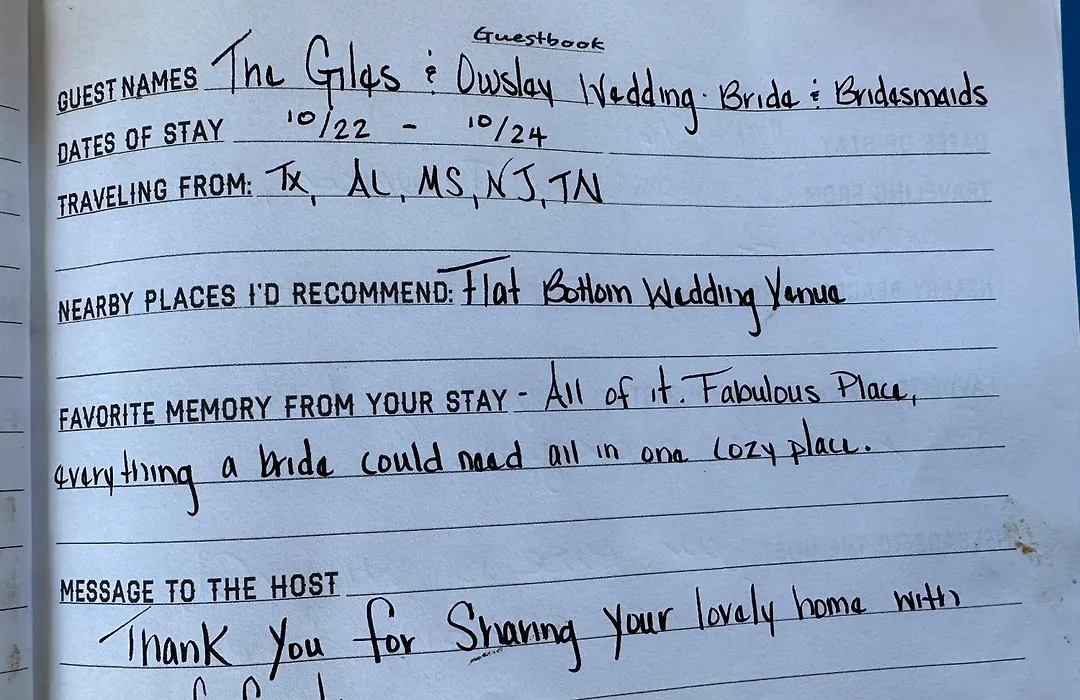 Guestbook
GUEST NAMES The Giles & Owsley Wedding. Bride & Bridesmaids
DATES OF STAY 10/22 - 10/24
TRAVELING FROM: Tx, AL, MS, NJ, TN
NEARBY PLACES I'D RECOMMEND: Flat Bottom Wedding Venue
FAVORITE MEMORY FROM YOUR STAY - All of it. Fabulous Place,
everything a bride could need all in one cozy place.
MESSAGE TO THE HOST
Thank you for Sharing your lovely home with